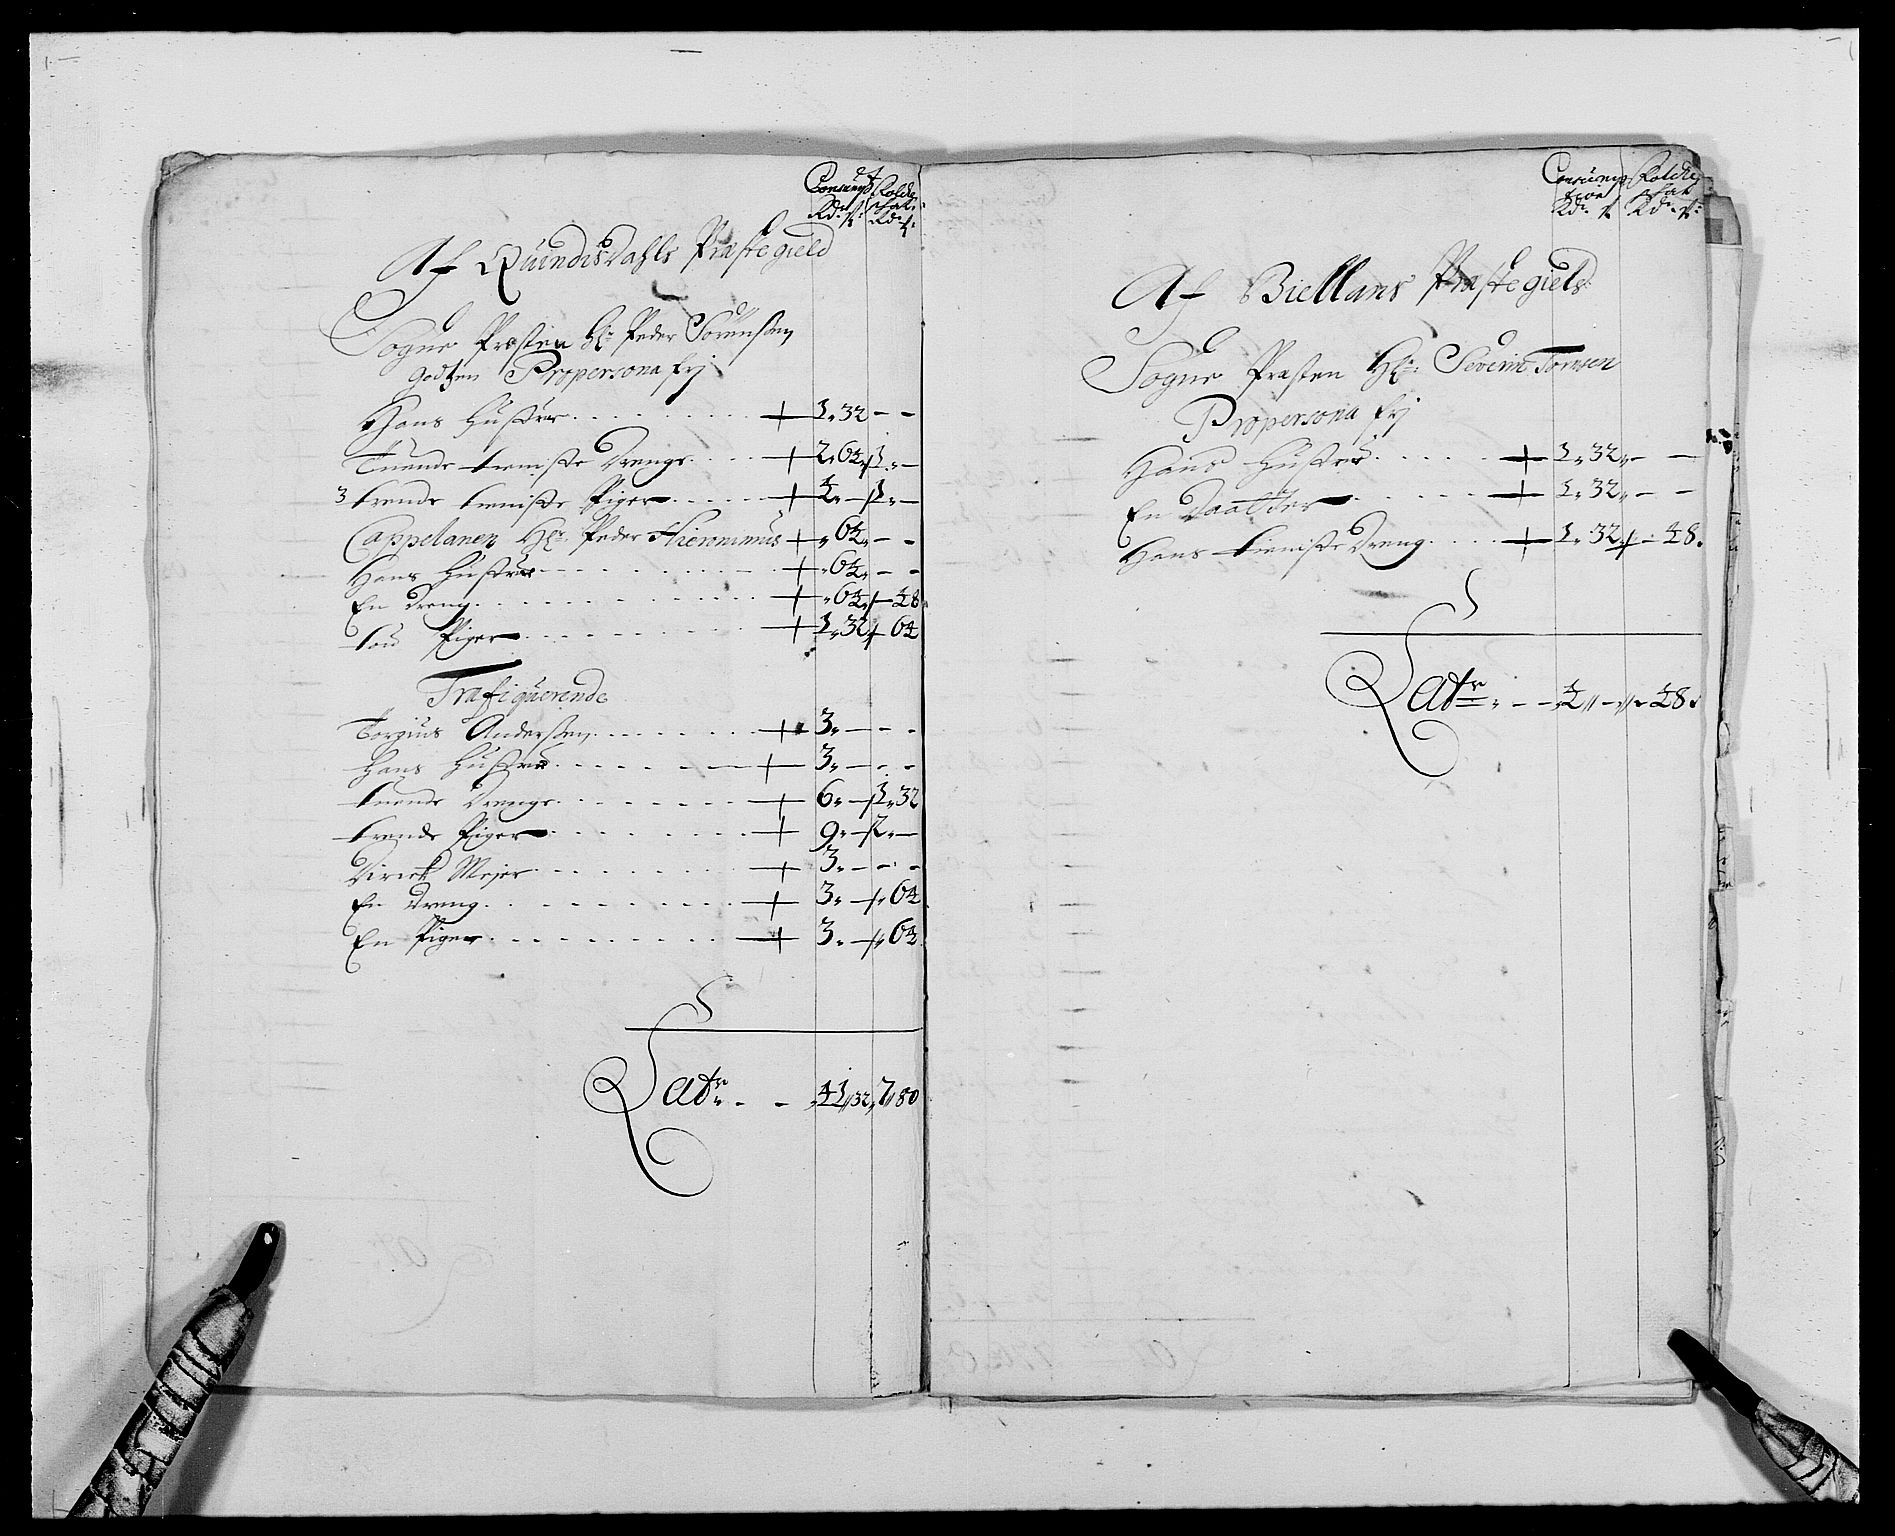 Consumpt Folche
skat
Rdr ß Rdr ß
Af Quindisdahls Præstegield
Sogne Præsten Hr: Peder Sörensen
Godtzen Propersona frj
Hans Hustrue + 1. 32 - -
Tuende tieniste Drenge + 2. 64. 1. -
3 trende tieniste Piger + 4. - 1. -
Cappelanen Hr: Peder Hieronimus + . 64. - -
Hans Hustrue + . 64. - -
En Dreng + . 64. - 48
toe Piger + 1. 32. 64
Trafiquerende
Torgius Andersen + 3. - - -
Hans Hustrue + 3. - - -
tuende Drenge + 6. - 1. 32
trende Piger + 9. - 2. -
Dirick Mejer + 3. - - -
En Dreng + 3. - . 64
En Piger + 3. - . 64
Latr: - - 41 32 7 80
Consump Folche
tion skat
Rdr ß Rdr ß
Af Biellans Præstegield
Sogne Præsten Hr: Severin Tomsen
Propersona frj
Hans Hustrue + 1. 32. - -
En Daatter + 1. 32. - -
Hans tieniste Dreng + 1. 32. - 48.
Latr: - - 4 - - 48.